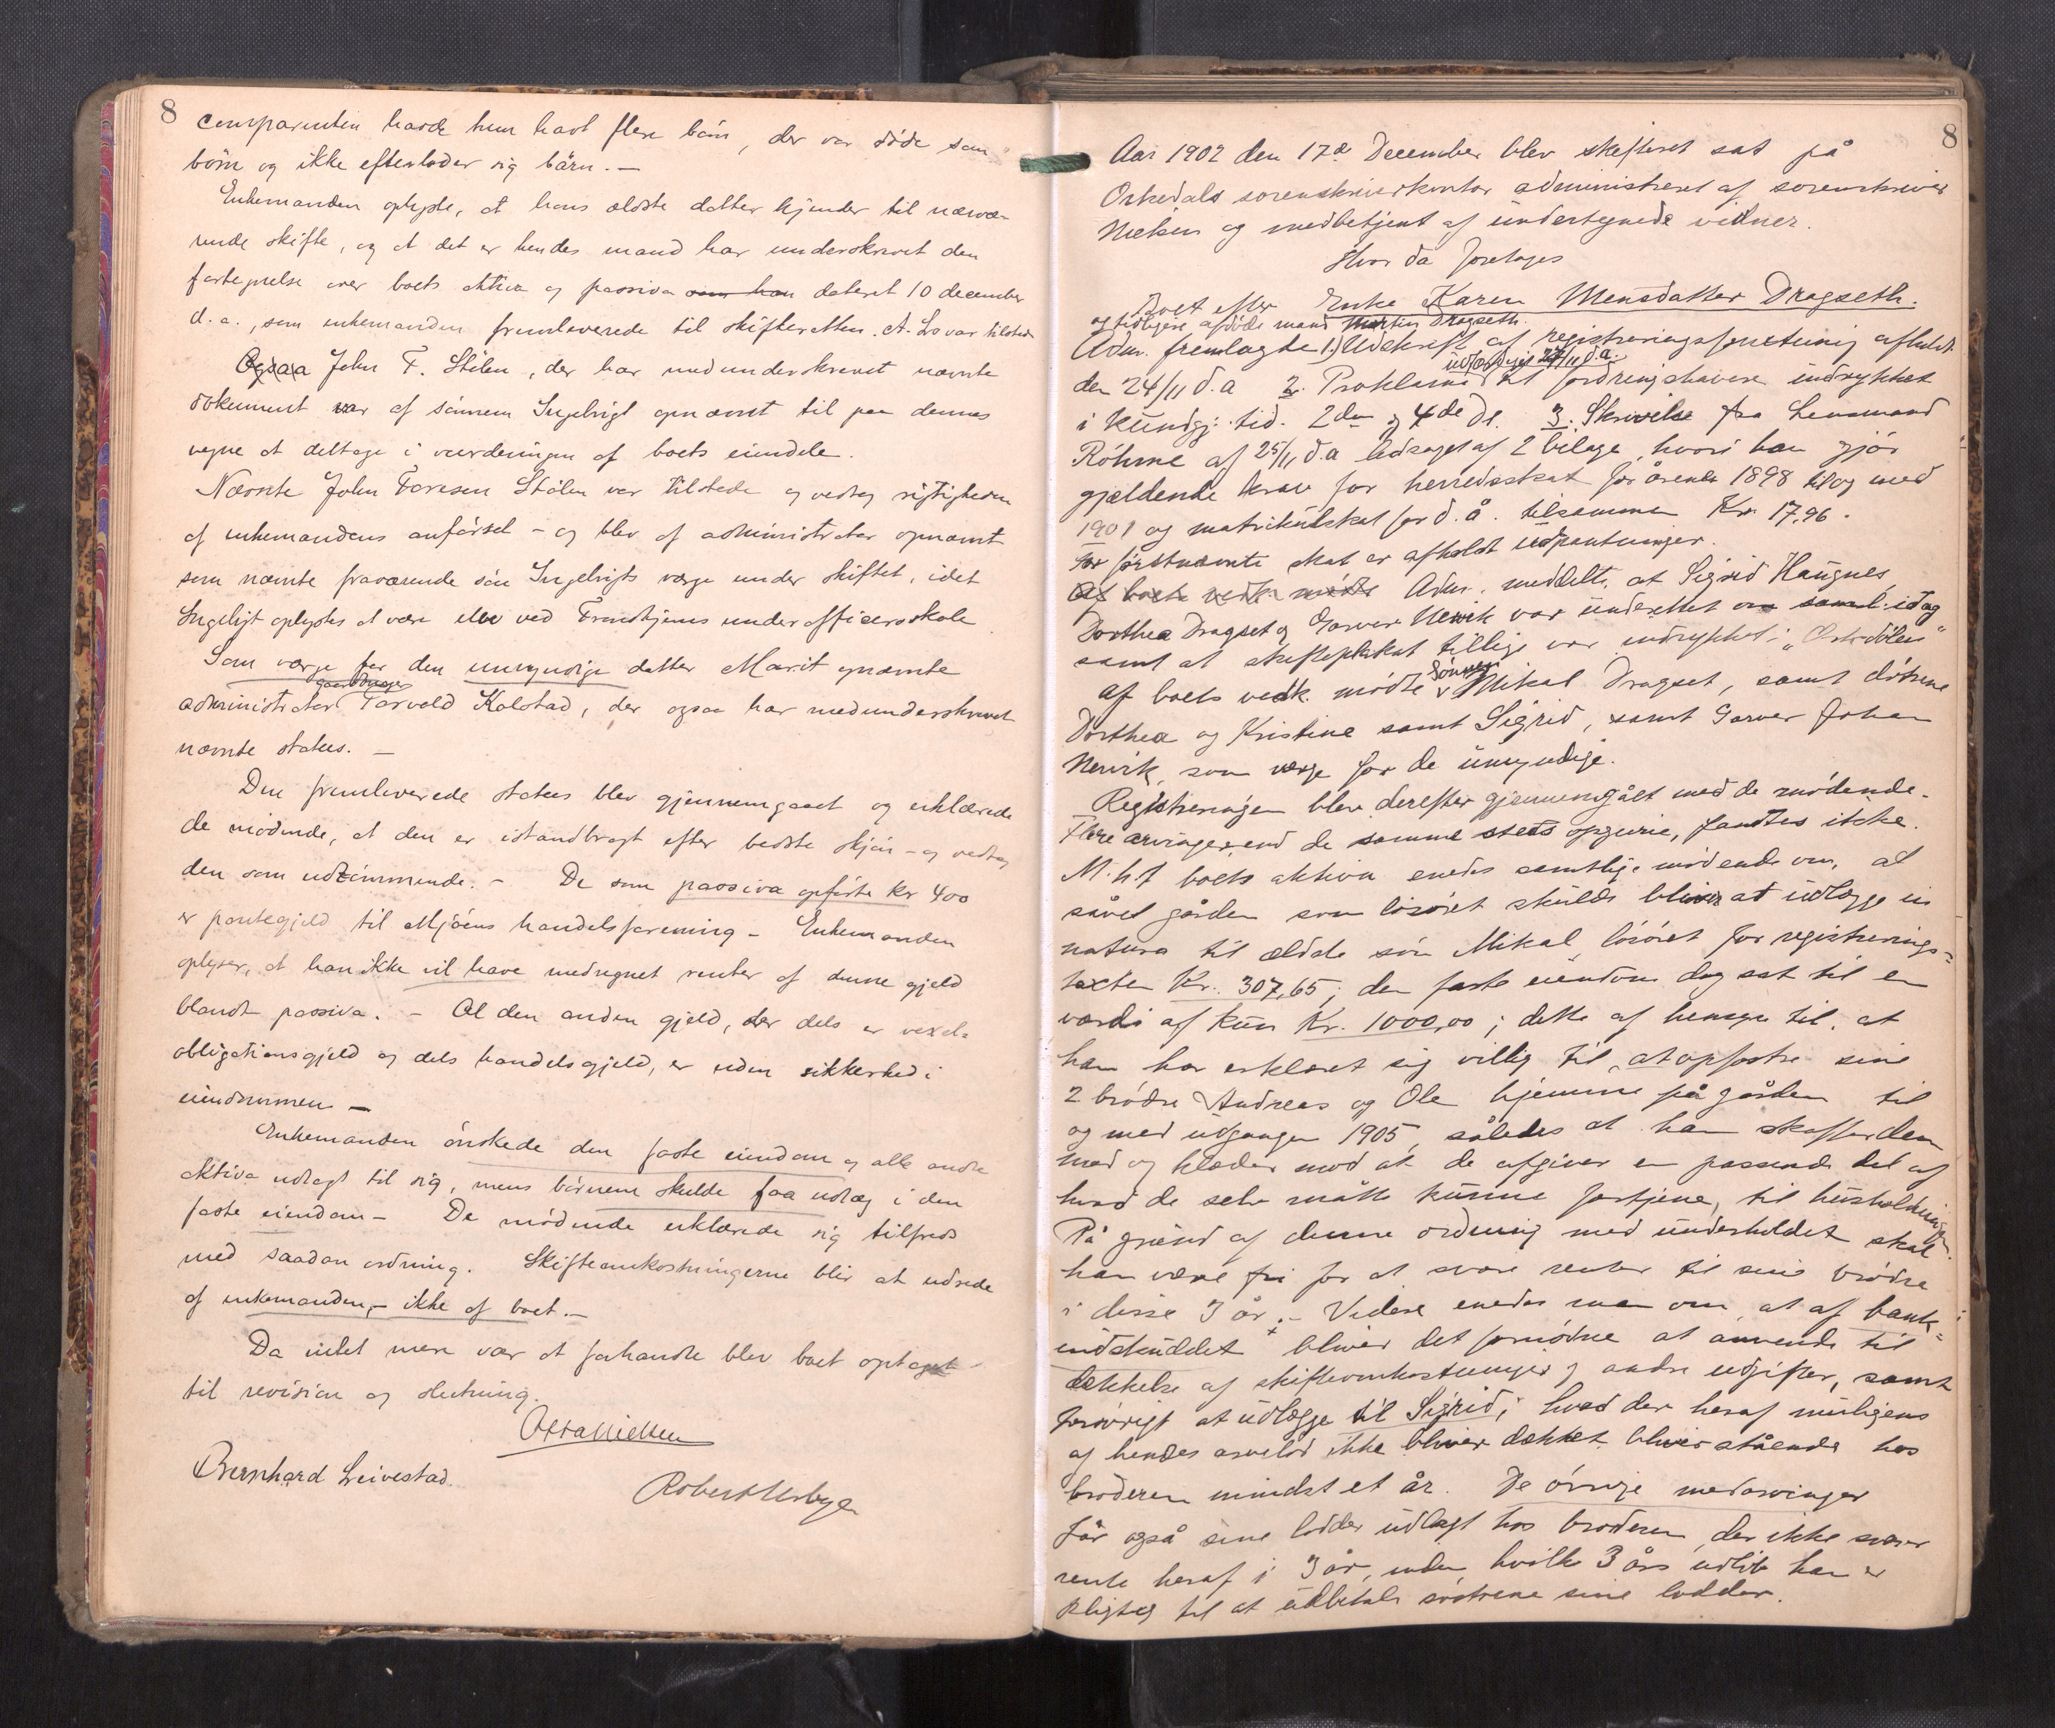 8
Comparenten havde hun havt flere børn, der var døde som
børn og ikke efterlader sig børn. –
Enkemanden oplyste, at hans ældste datter kjender til nærvæ-
rende skifte, og at det er hendes mand har underskrevet den
fortegnelse over boets aktiva og passiva som han dateret 10 december
d.a., som enkemanden fremleverede til skifteretten. A. Ls var tilstede
Ogsaa John F. Stölen, der har medunderskrevet nævnte
dokument var af sønnen Ingebrigt opnævnt til paa dennes
vegne at deltage i vurderingen af boets eiendele.
Nævnte John Toresen Stölen var tilstede og vedtog rigtigheden
af enkemandens anførsel – og blev af administrator opnævnt
som nævnte fraværende søn Ingebrigts værge under skiftet, idet
Ingebrigt oplystes at være elev ved Trondhjems underofficersskole
Som værge for den umyndige datter Marit opnævnte
administrator gaardbruger Torvald Kolstad, der ogsaa har medunderskrevet
nævnte status. –
Den fremleverede status blev gjennemgaaet og erklærede
de mødende, at den er istandbragt efter bedste skjøn – og vedtog
den som udtømmende. – De som passiva opførte kr 400
er pantegjeld til Mjöens handelsforening – Enkemanden
oplyser, at han ikke vil have medregnet renter af denne gjeld
blandt passiva. – Al den anden gjeld, der dels er vexel-
obligationsgjeld og dels handelsgjeld, er uden sikkerhed i
eiendommen –
Enkemanden ønskede den faste eiendom og alle andre
aktiva udlagt til sig, mens børnene skulde faa udlæg i den
faste eiendom – De mødende erklærede sig tilfreds
med saadan ordning. Skifteomkostningerne blir at udrede
af enkemanden, – ikke af boet. –
Da intet mere var at forhandle blev boet optaget
til revision og slutning.
Otto Nielsen
Bernhard Leivestad.
Robert Usbye
8
Aar 1902 den 17de December blev skifteret sat på
Orkedals sorenskriverkontor administreret af sorenskriver
Nielsen og medbetjent af undertegnede vidner.
Hvor da foretoges
Boet efter Enke Karen Monsdatter Dragseth.
og tidligere afdøde mand Martin Dragseth.
Adm. fremlagde 1.) Udskrift af registreringsforretning afholdt
udfærdiget 27/11 d.a.
den 24/11 d.a 2. Proklama at fordringshavere indrykket
i Kundgj. tid. 2den og 4de Ds. 3. Skrivelse fra Lensmand
Röhme af 25/11 d.a ledsaget af 2 bilage, hvori han gjør
gjældende krav for herredsskat for årene 1898 til og med
1901 og matrikulskat for d.å. tilsammen Kr. 17,96.
For førstnævnte skat er afholdt udpantninger.
Af boets vedk. mødte Adm. meddelte, at Sigrid Haugnes
Dorthea Dragset og Garver Nervik var underettet om saml. idag
samt at skifteplakat tillige var indrykket i "Orkedölen"
af boets vedk. mødte sønnen Mikal Dragset, samt døtrene
Dorthea og Kristine samt Sigrid, samt Garver Johan
Nervik, som værge for de umyndige.
Registreringen blev derefter gjennemgået med de mødende.
Flere arvinger, end de samme steds opgivne, fandtes ikke.
M.h.t boets aktiva enedes samtlige mødende om, at
såvel gården som løsøret skulde bliver at udlægge in
natura til ældste søn Mikal, løsøret for registrerings=
taxten Kr. 307,65; den faste eiendom dog sat til en
værdi af kun Kr. 1000,00; dette af hensyn til, at
han har erklæret sig villig til, at opfostre sine
2 brødre Andreas og Ole hjemme på gården til
og med udgangen 1905, således at han skaffer dem
mad og klæder mod at de afgiver en passende del af
hvad de selv måtte kunne fortjene, til husholdningen.
På grund af denne ordning med underholdet skal
han være fri for at svare renter til sine brødre
i disse 3 år. – Videre enedes man om, at af bank=
indskuddet bliver det fornødne at anvende til
dækkelse af skifteomkostninger og andre udgifter, samt
forøvrigt at udlægge til Sigrid; hvad der heraf muligens
af hendes arvelod ikke bliver dækket bliver stående hos
broderen mindst et år. De øvrige medarvinger
får også sine lodder udlagt hos broderen, der ikke svarer
rente heraf i 3 år, inden hvilke 3 års udløb han er
pligtig til at udbetale søstrene sine lodder.